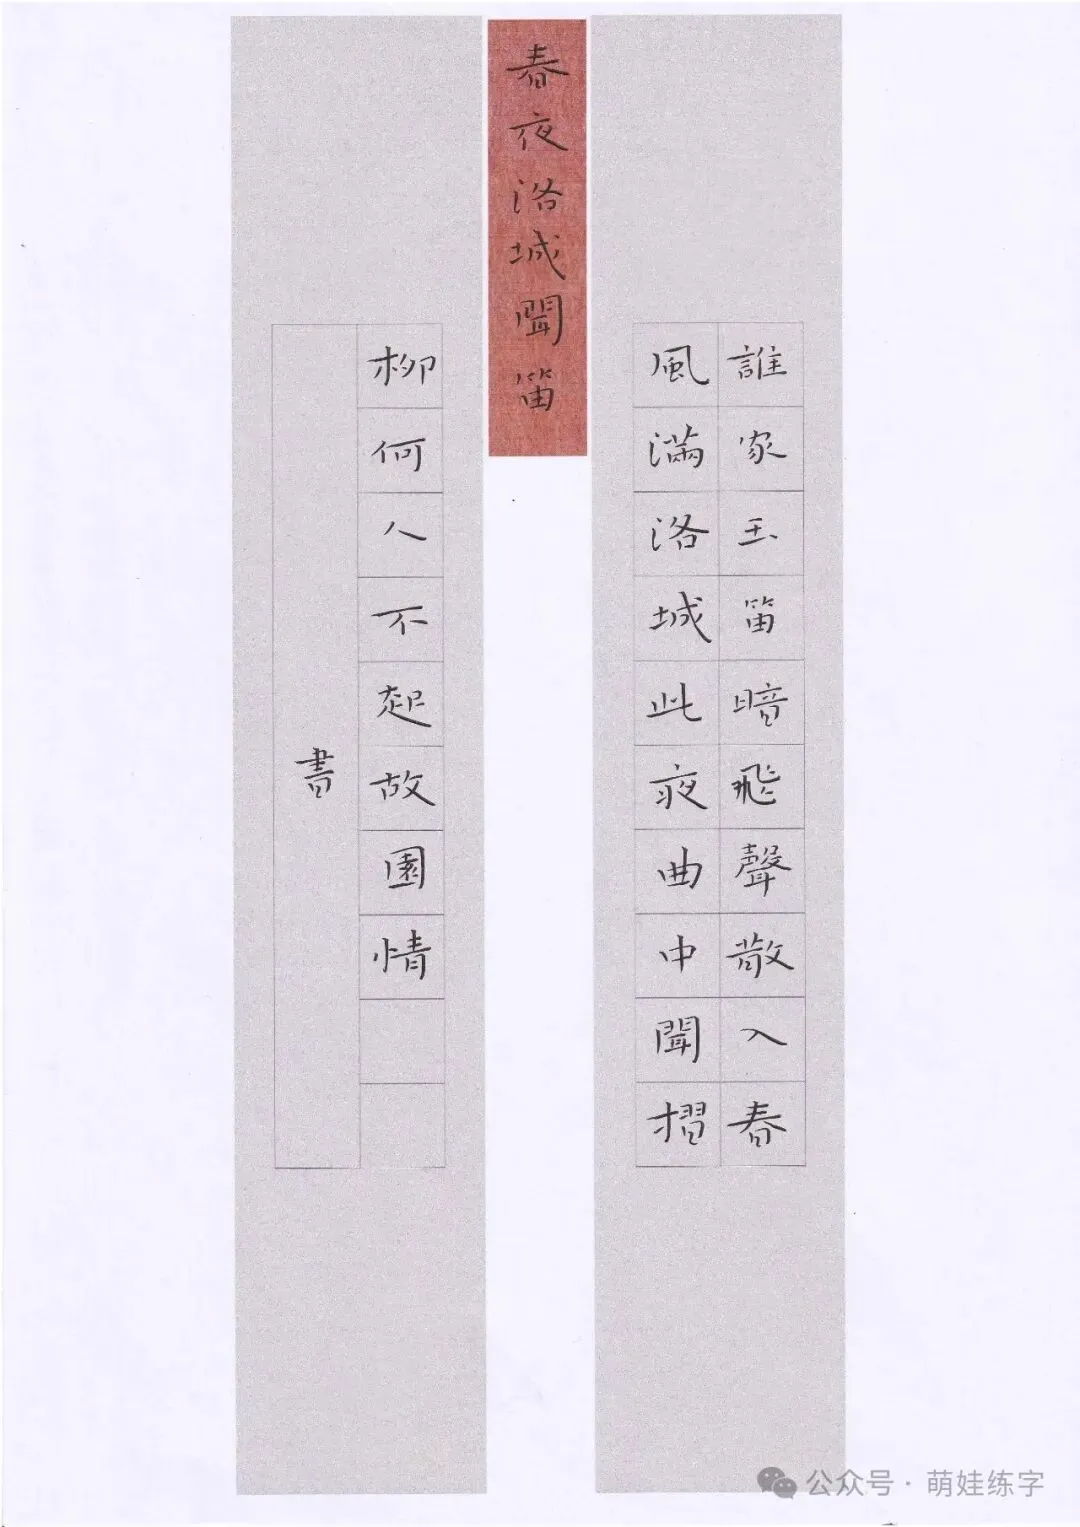 春夜洛城聞笛
誰家玉笛暗飛聲散入春
風滿洛城此夜曲中聞摺
柳何人不起故園情
書
公众号·萌娃练字